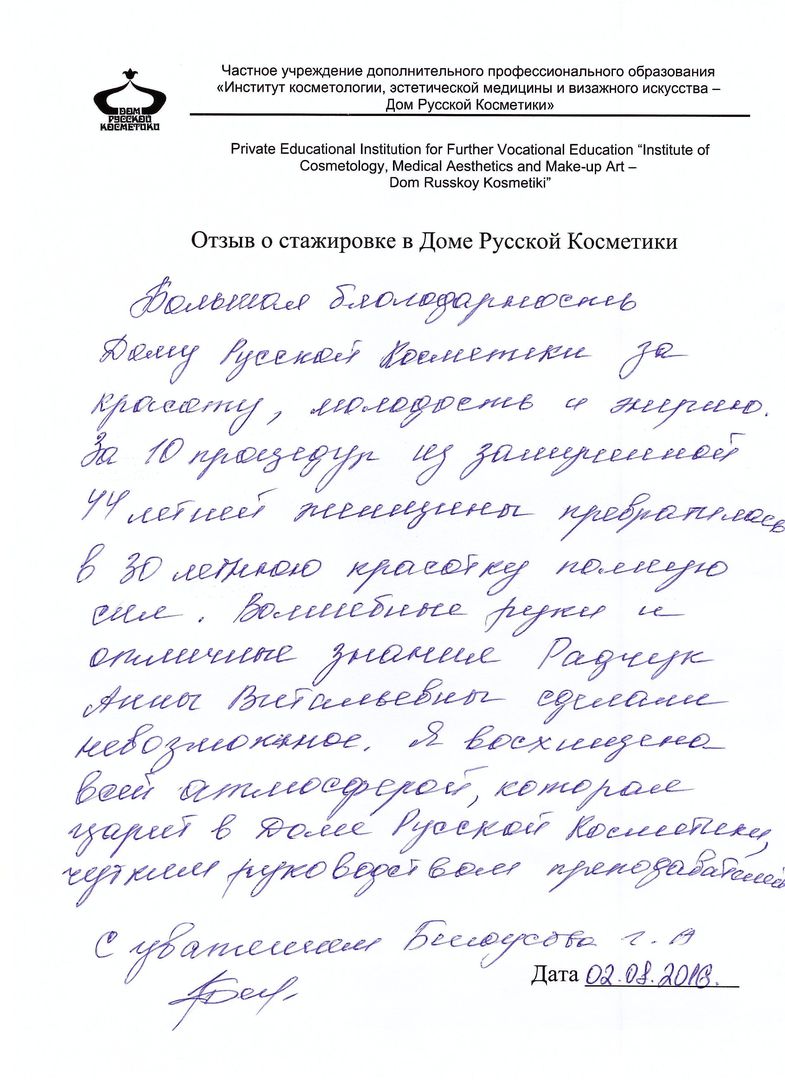 Частное учреждение дополнительного профессионального образования
«Институт косметологии, эстетической медицины и визажного искусства –
Дом Русской Косметики»
ДОМ
РУССКОЙ
КОСМЕТИКИ
Private Educational Institution for Further Vocational Education “Institute of
Cosmetology, Medical Aesthetics and Make-up Art –
Dom Russkoy Kosmetiki”
Отзыв о стажировке в Доме Русской Косметики
Большая благодарность
Дому Русской Косметики за
красоту, молодость и энергию.
За 10 процедур из замученной
44 летней женщины превратилась
в 30 летнюю красотку полную
сил. Волшебные руки и
отличные знания Радчук
Анны Витальевны сделали
невозможное. Я восхищена
всей атмосферой, которая
царит в Доме Русской Косметики,
чутким руководством преподавателей
С уважением Белоусова Г. А
Дата 02.08.